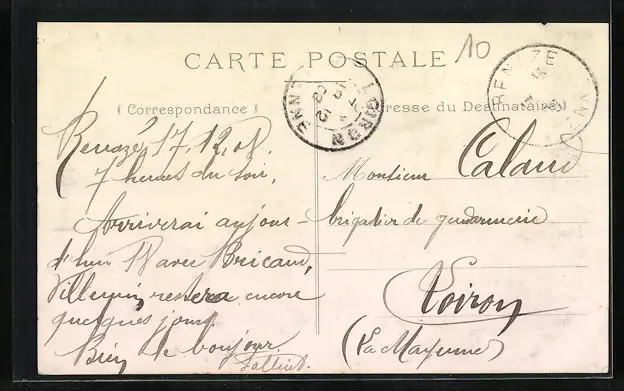 CARTE POSTALE
10
(Correspondance)
Adresse du Destinataire)
RENAZE
LOIRON
MAYENNE
Renazé 17.12.08.
7 heures du soir,
Arriverai aujour-
d'hui 18 avec Bricaud,
Villemin, restera encore
quelques jours.
Bien le bonjour
Monsieur Calaud
brigadier de gendarmerie
Loiron
(La Mayenne)